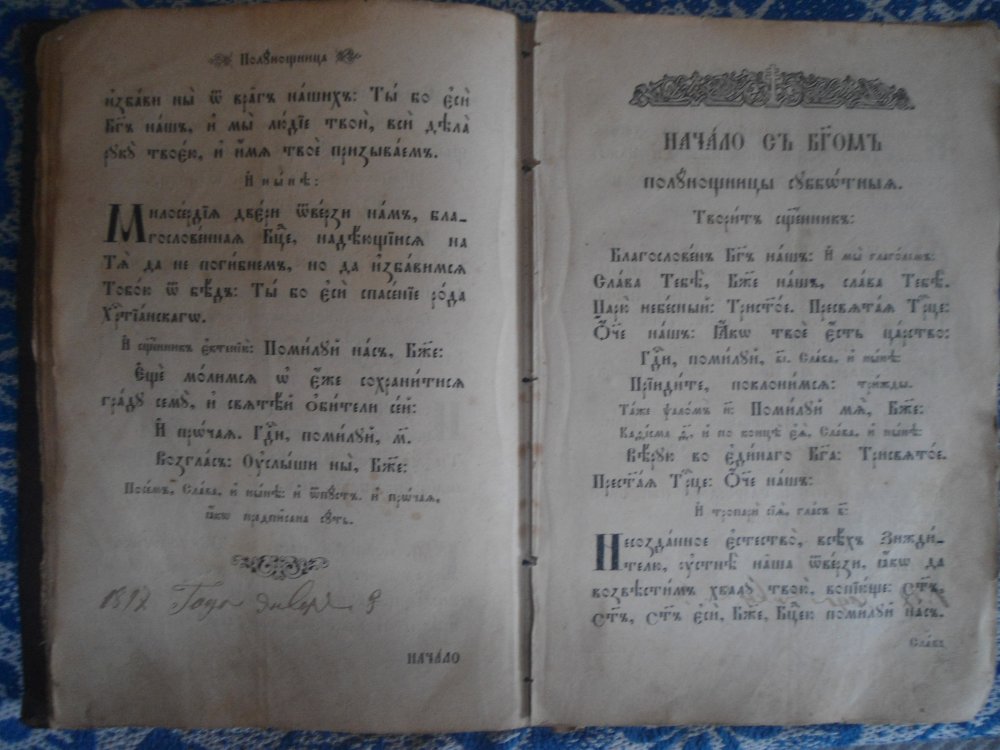 Полꙋ́нощница
и҆зба́ви ны̀ ѿ вра̑гъ на́шихъ: Ты́ бо є҆сѝ
Бг҃ъ на́шъ, и҆ мы̀ лю́дїе твоѝ, всѝ дѣ́ла
рꙋкꙋ̀ твоє́ю, и҆ и҆́мѧ твоѐ призыва́емъ.
И҆ ны́нѣ:
Милосе́рдїѧ две́ри ѿве́рзи на́мъ, бла-
гослове́ннаѧ Бц҃е, надѣ́ющїисѧ на
Тѧ̀ да не поги́бнемъ, но да и҆зба́вимсѧ
Тобо́ю ѿ бѣ́дъ: Ты́ бо є҆сѝ спасе́нїе ро́да
Хрⷭ҇тїа́нскагѡ.
И҆ сщ҃е́нникъ є҆ктенїю̀: Поми́лꙋй на́съ, Бж҃е:
Є҆щѐ мо́лимсѧ ѡ҆ є҆́же сохрани́тисѧ
гра́дꙋ семꙋ̀, и҆ свѧтѣ́й ѻ҆би́тели се́й:
И҆ прѡ́чаѧ. Гдⷭ҇и, поми́лꙋй, м҃.
Возгла́съ: Оу҆слы́ши ны̀, Бж҃е:
Посе́мъ, Сла́ва, и҆ ны́нѣ: и҆ ѿпꙋ́стъ. и҆ прѡ́чаѧ,
ꙗ҆́кѡ предпи̑сана сꙋ́ть.
1897 Года январѧ 9
НАЧА́ЛО
НАЧА́ЛО СЪ БГ҃ОМЪ
полꙋ́нощницы сꙋббѡ́тныѧ.
Твори́тъ сщ҃е́нникъ:
Благослове́нъ Бг҃ъ на́шъ: И҆ мы̀ глаго́лемъ:
Сла́ва Тебѣ̀, Бж҃е на́шъ, сла́ва Тебѣ̀.
Царю̀ небе́сный: Трист҃о́е. Пресвѧта́ѧ Трⷪ҇це:
Ѻ҆́ч҃е на́шъ: Ꙗ҆́кѡ твоѐ є҆́сть ца́рство:
Гдⷭ҇и, поми́лꙋй, в҃і. Сла́ва, и҆ ны́нѣ:
Прїиди́те, поклони́мсѧ: три́жды.
Та́же ѱало́мъ н҃: Поми́лꙋй мѧ̀, Бж҃е:
Каѳі́сма д҃, и҆ по концѣ̀ є҆ѧ̀, Сла́ва, и҆ ны́нѣ:
Вѣ́рꙋю во є҆ди́наго Бг҃а: Трисвѧто́е.
Прест҃а́ѧ Трⷪ҇це: Ѻ҆́ч҃е на́шъ:
И҆ тропарѝ сїѧ̑, гла́съ в҃:
Несозда́нное є҆стество̀, всѣ́хъ Зижди́-
телю, ᲂу҆стнѣ̀ на́ша ѿве́рзи, ꙗ҆́кѡ да
возвѣсти́мъ хвалꙋ̀ твою̀, вопїю́ще: Ст҃ъ,
Ст҃ъ, Ст҃ъ є҆сѝ, Бж҃е, Бц҃ею поми́лꙋй на́съ.
Сла́ва